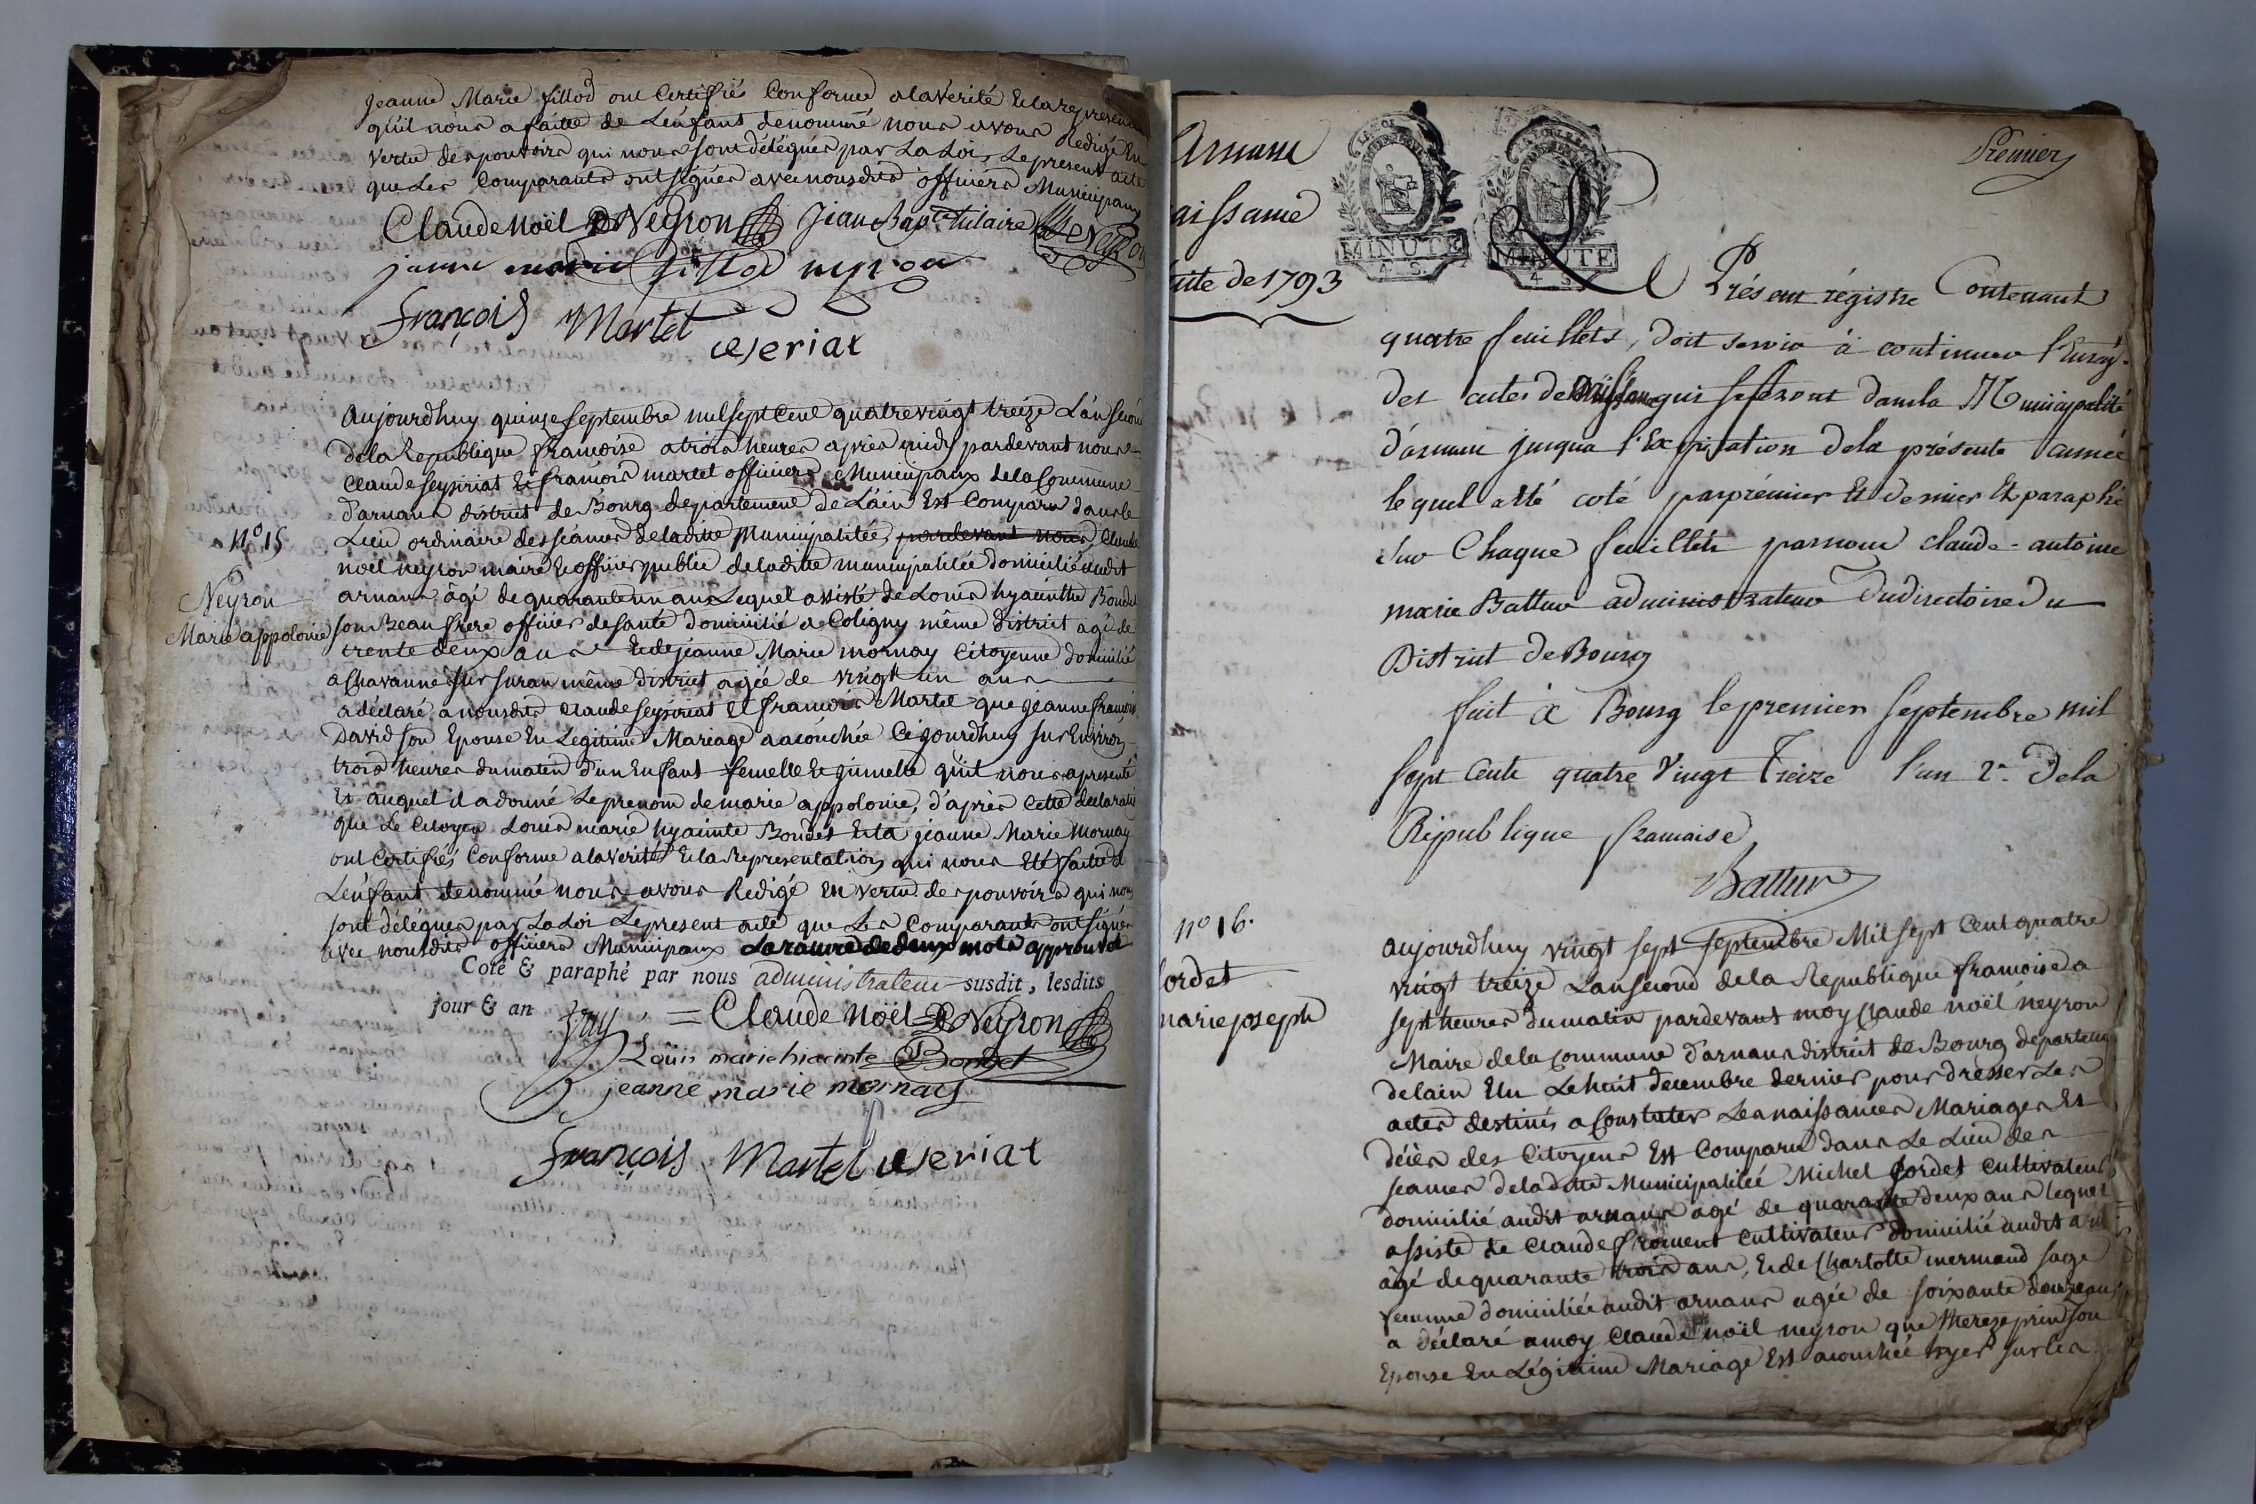 Jeanne Marie fillod ont Certifiés Conforme a la Verité Et la representa
qu'il nous a faitte de L'enfant denommé nous avons Redigé En
vertu des pouvoirs qui nous sont délégués par La Loi, Le present acte
que Les Comparants ont signés avec nousdits officiers Municipaux
Claude Noël Neyron Jean Bapte tulaire Neyron
jeanne marie fillod neyron
françois Martel
ceseriat
aujourdhuy quinze septembre mil sept cent quatre vingt treize L'an second
de la Republique françoise a trois heures après midy pardevant nous
Claude seyseriat Et françois martel officiers Municipaux de la Commune
d'arnans district de Bourg departement de L'ain Est Comparu dans le
Lieu ordinaire des séances de laditte Municipalitée, pardevant nous, Claude
N.o 15
noël neyron maire Et officier public de laditte municipalitée domicilié audit
Neyron
arnans âgé de quarante un ans Lequel assisté de Louis hyacinthe Bondet
Marie appolonie
son Beau frere officier de santé domicilié a Coligny même District agé de
trente deux ans Et de jeanne Marie mornay Citoyenne domicilié
a Chavanne sur suran même district agée de vingt un ans
a déclaré a nousdits Claude seyseriat Et françois Martel que jeanne françoise
David son Epouse En Legitime Mariage a acouchée Cejourdhuy sur Environ
trois heures du matin d'un Enfant femelle Et gumelle qu'il nous a presenté
Et auquel il a donné Le prenom de marie appolonie, d'après Cette declaration
que Le Citoyen Louis marie hyacinte Bondet Et la jeanne Marie Mornay
ont Certifiés Conforme a la Verité Et la Representation qui nous Eté faitte de
L'enfant denommé nous avons Redigé En vertu des pouvoirs qui nous
sont délégués par La Loi Le present acte que Les Comparants ont signés
avec nousdits officiers Municipaux La rature de deux mots approuvée
Coté & paraphé par nous administrateur susdit, lesdits
jour & an
Claude Noël Neyron
Louis marie hiacinte Bondet
jeanne marie mornay
françois Martel ceseriat
Arnans
aissance
uite de 1793
LA LOI
MINUTE
4 S.
MINUTE
4 S.
Premier
Le Présent régistre Contenant
quatre feuillets, doit servir à continuer l'Enreg.
des actes de Naissance qui se feront dans la Municipalité
d'arnans jusqua l'Expiration dela présente année
lequel a été coté par prémier Et dernier Et paraphé
sur Chaque feuillets par nous claude-antoine
marie Battur administrateur du directoire du
District de Bourg
fait à Bourg le premier septembre mil
sept cents quatre vingt Treize l'an 2e. de la
République francaise
Battur
n.o 16.
aujourdhuy vingt sept septembre Mil sept Cent quatre
ordet
vingt treize L'an second de la Republique françoise a
marie joseph
sept heures du matin pardevant moy Claude noël neyron
Maire de la Commune d'arnans district de Bourg departem
de lain Elu Le huit decembre dernier pour dresser Les
actes destinés a Constater Les naissances Mariages Et
décès des Citoyens Est Comparu dans Le Lieu des
seances de laditte Municipalitée Michel fordet Cultivateur
domicilié audit arnans agé de quarante deux ans lequel
assisté de Claude froment Cultivateur domicilié audit arn
âgé de quarante trois ans, Et de Charlotte mermand sage
femme domiciliée audit arnans agée de soixante douze ans
a déclaré a moy Claude noël neyron que son
Epouse En Légitime Mariage Est acouchée hyer sur les